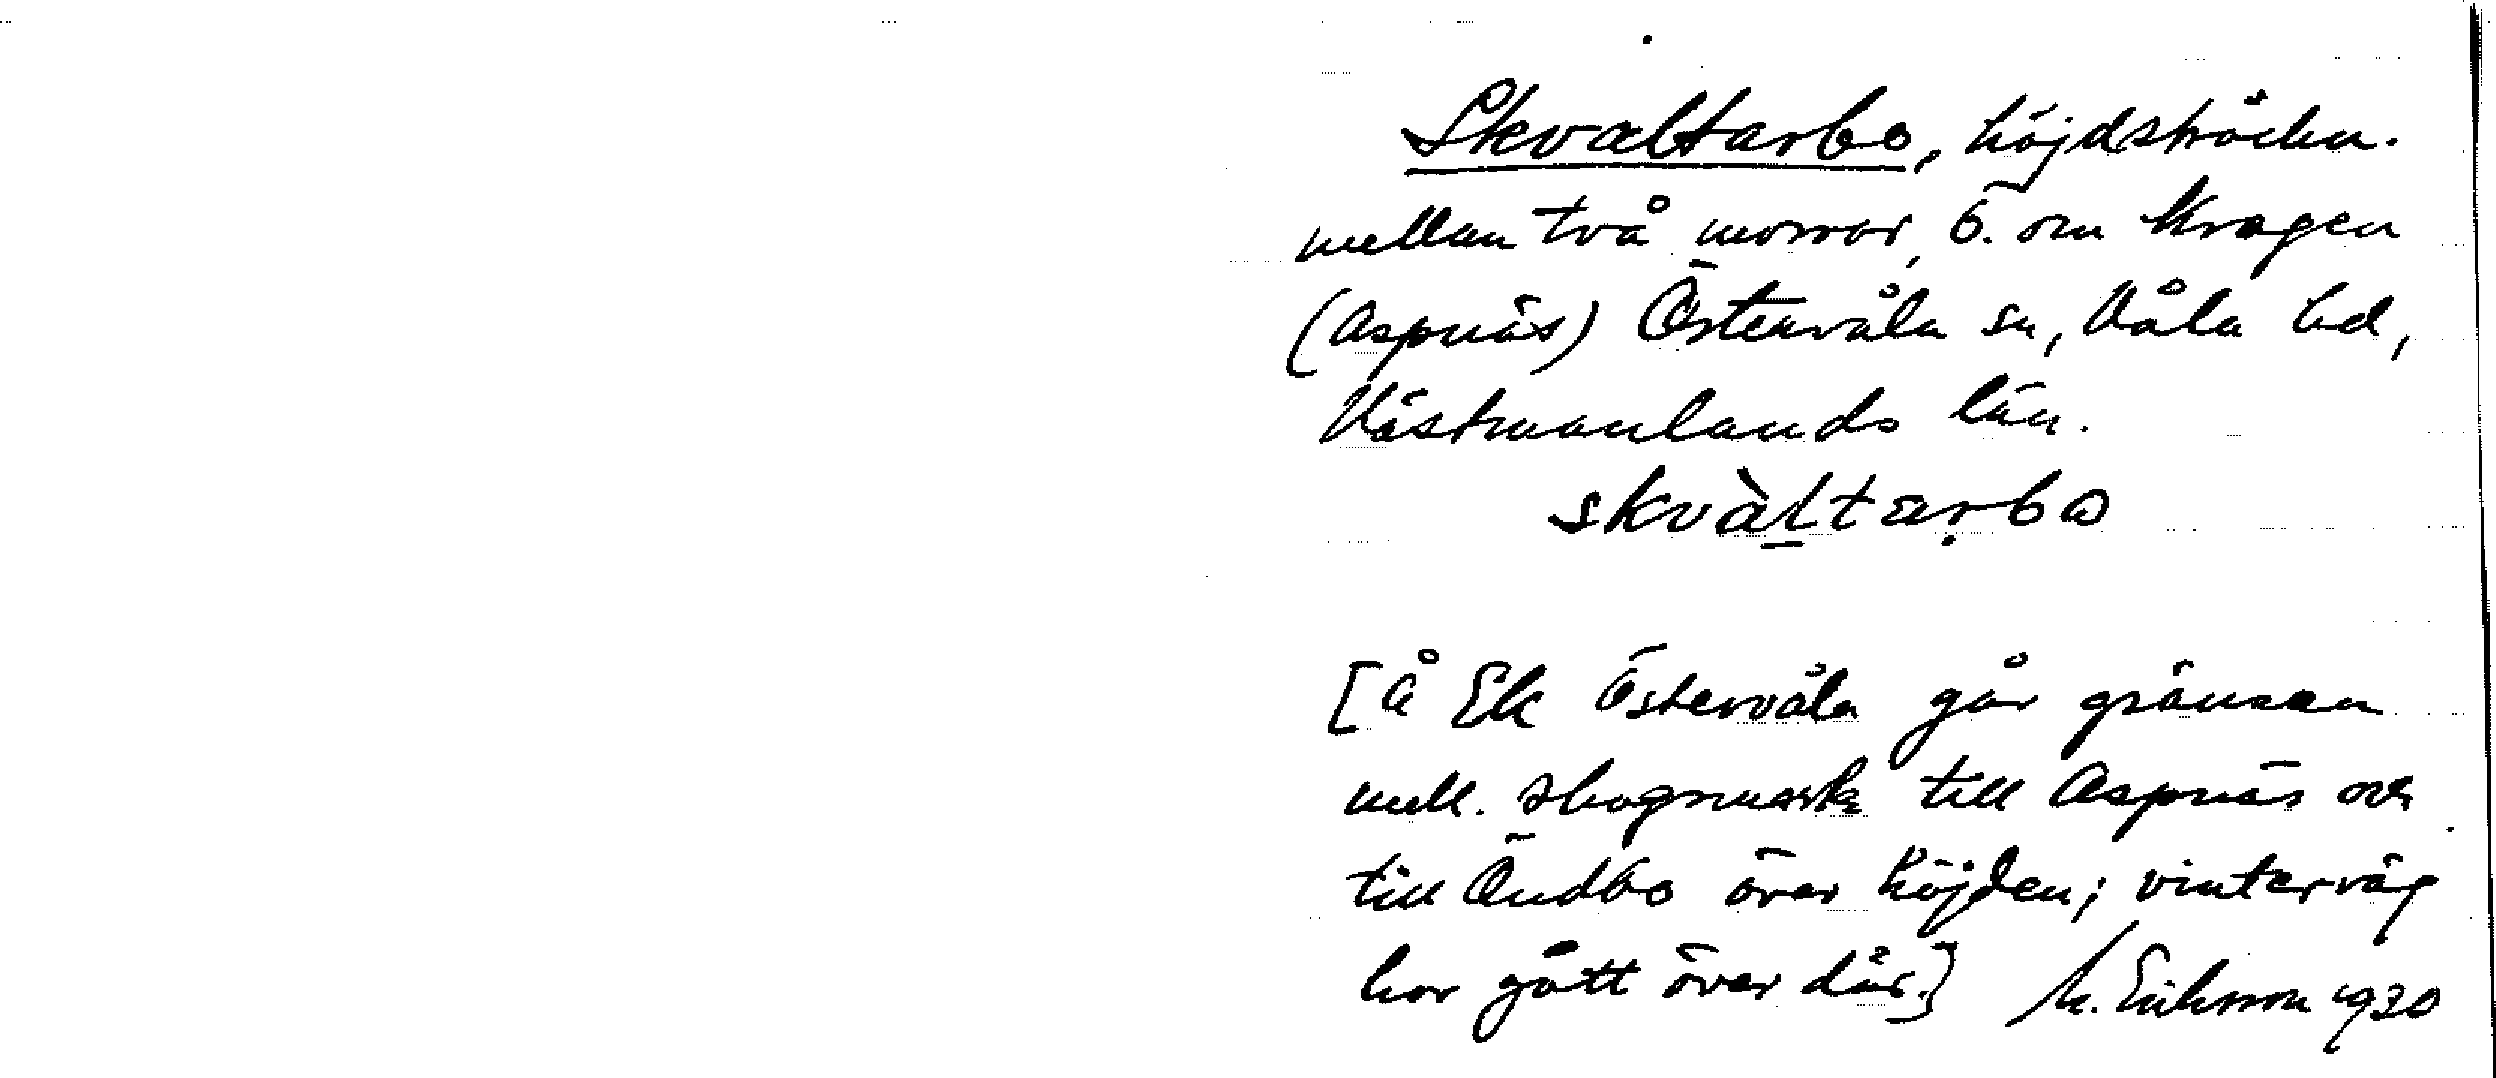 Skvaltarbo, höjdsträckn.
mellan två morror, ö. om Kragen
(Aspnäs) Östervåla sn, Våla hd,
Västmanlands län.
skvàltarbo
[Å Ek Östervåla går gränsen
mell. skogsmark till Aspnäs och
till Öndbo över höjden; vinterväg
har gått över där.] M. Eriksson 1930